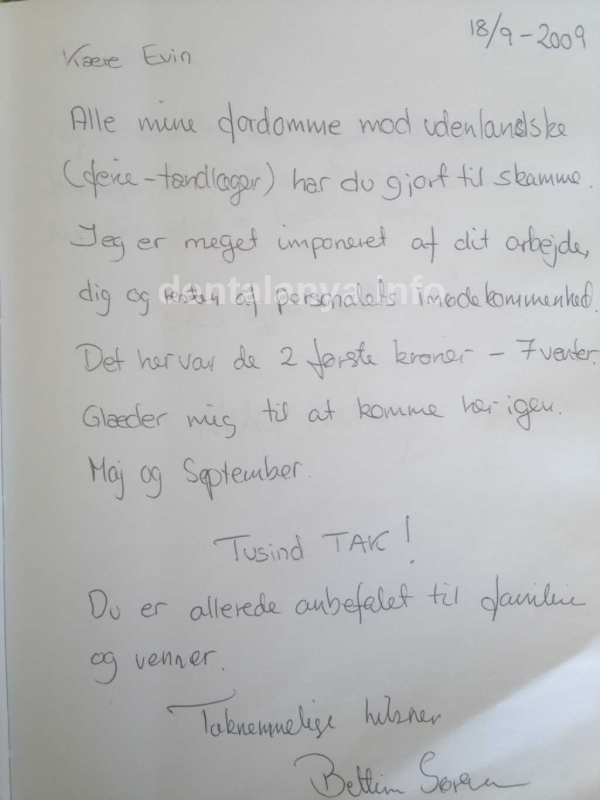 18/9-2009
Kære Evin
Alle mine fordomme mod udenlandske
(ferie-tandlæger) har du gjort til skamme.
Jeg er meget imponeret af dit arbejde,
dentalanya.info
dig og resten af personalets imødekommenhed.
Det her var de 2 første kroner - 7 venter.
Glæder mig til at komme her igen.
Maj og September.
Tusind TAK!
Du er allerede anbefalet til familie
og venner.
Taknemmelige hilsner
Bettina